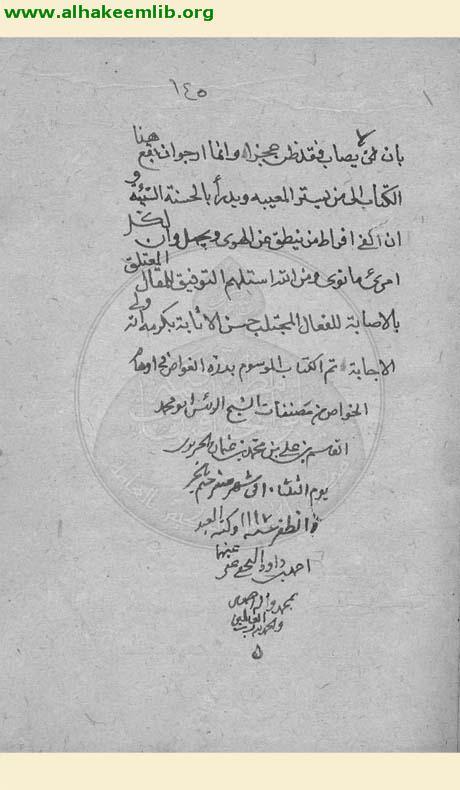 www.alhakeemlib.org
١٤٥
بان لا يصاب فقد ظن عجزا وانما ارجو ان يقع هذا
الكتاب الى من يستر المعيبه ويدرأ بالحسنة السّيّئة و
ان اكفى افراط من ينطق عن الهوى ويجهل وان لكل
امرئ ما نوى ومن الله استلهم التوفيق للمقال المعتلق
بالاصابة للفعال المجتلب حسن الاثابة بكرمه انه ولي
الاجابة تم الكتاب الموسوم بدرة الغواص في اوهام
الخواص من مصنفات الشيخ الرئيس ابو محمد
القاسم بن علي بن محمد بن عثمان الحريري
يوم الثلثا ١٠ في شهر صفر ختم بالخير
والظفر سنة ١١١٧ وكتبه العبد
احمد بن داود النجفي عفى عنهما
بمحمد وآله
والحمد لله رب العالمين